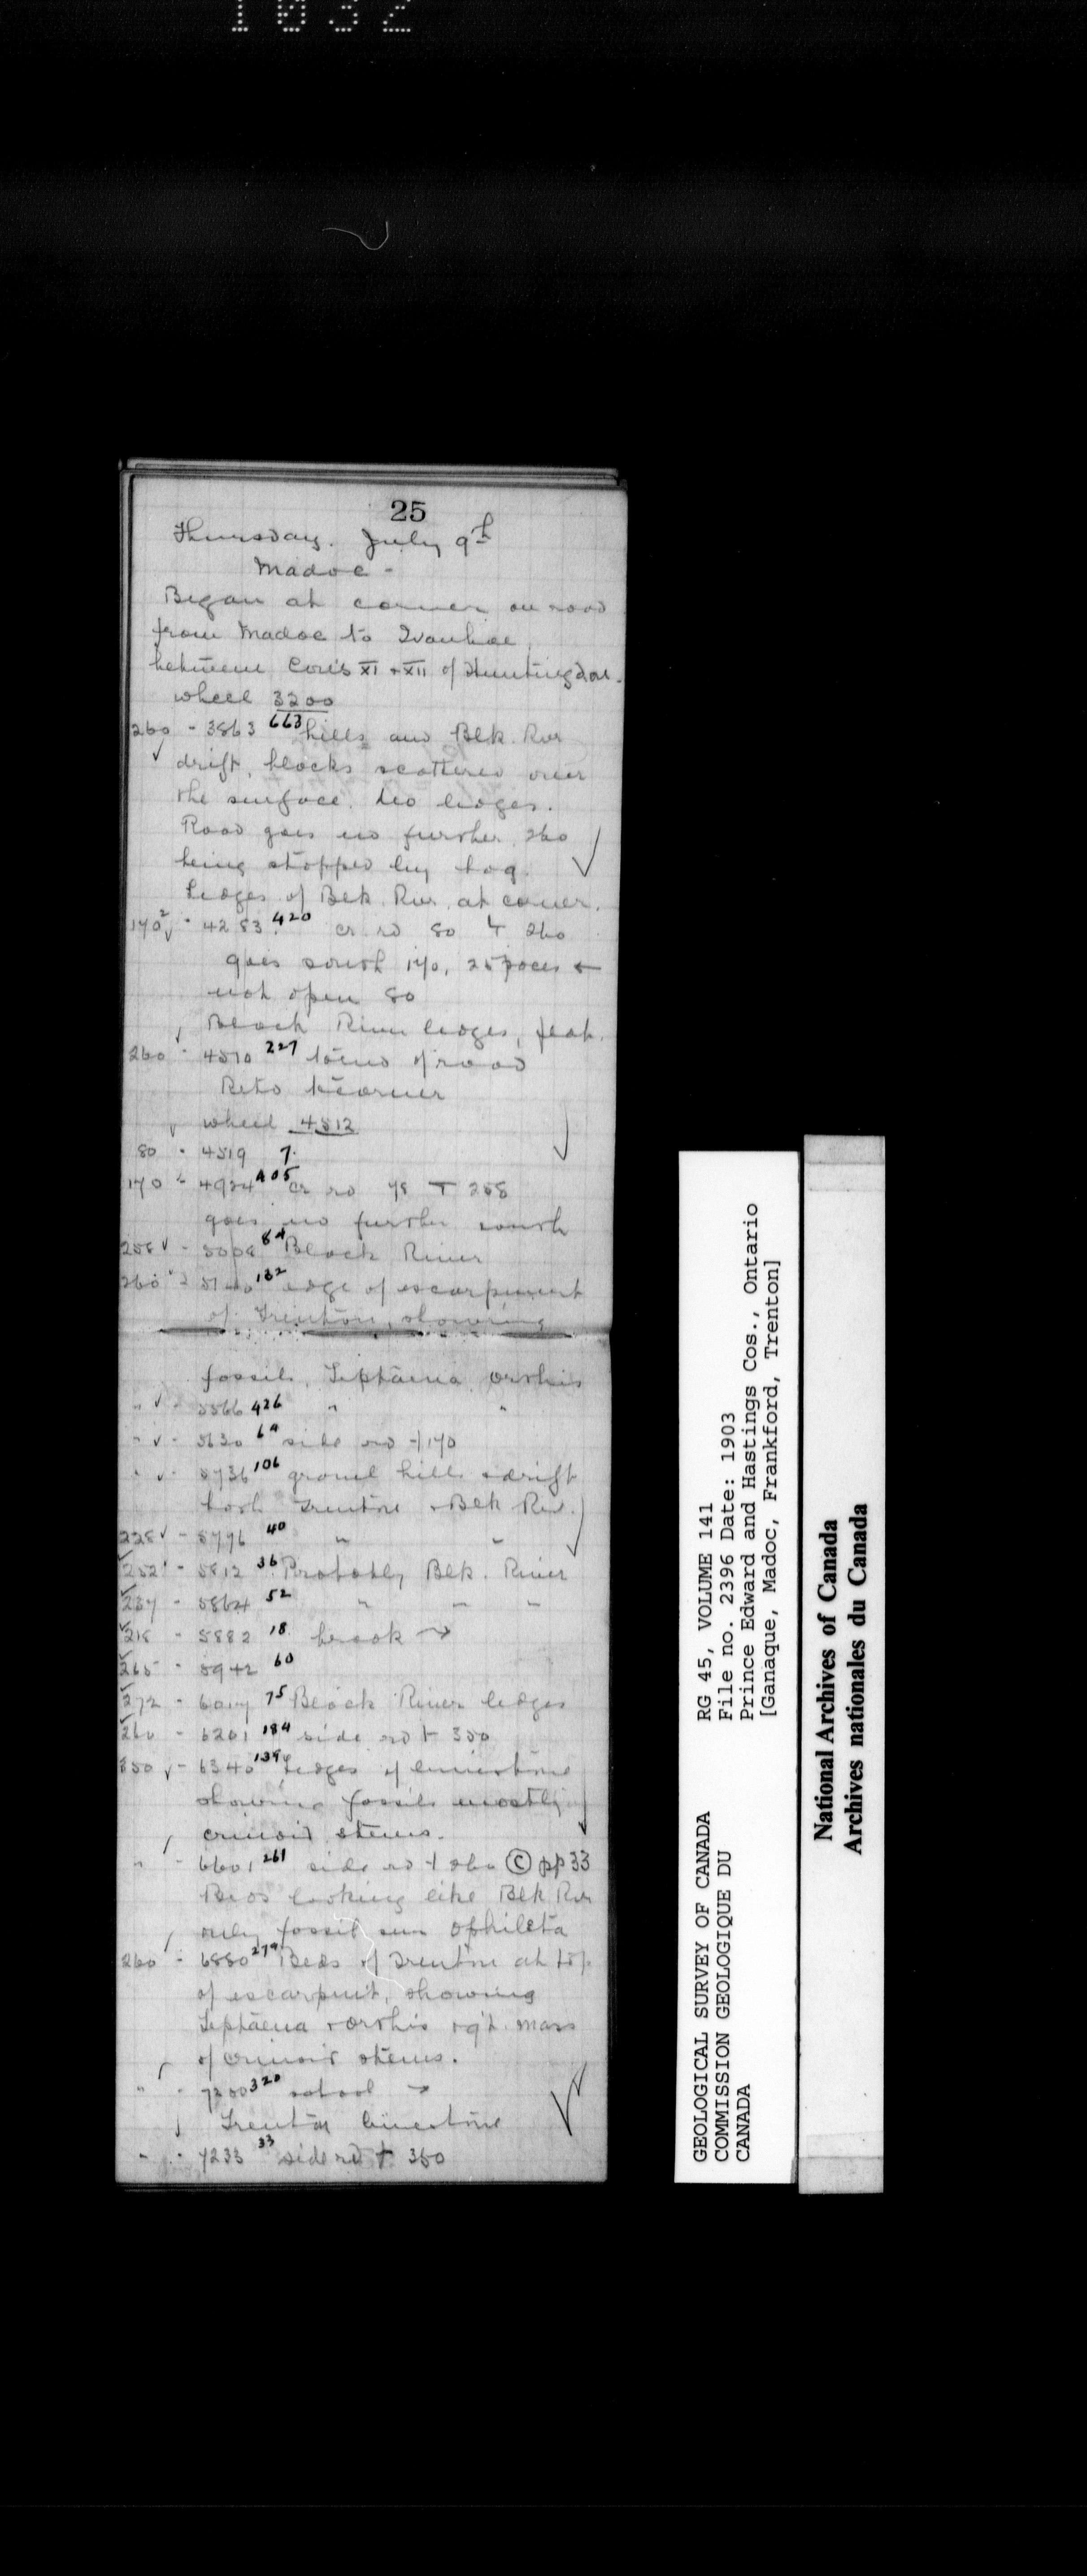 1032
25
Thursday. July 9th
Madoc -
Began at corner on road
from Madoc to Ivanhoe
between Con's XI + XII of Huntingdon.
wheel 3200
260 - 3863 663 hills and Blk. Rvr
drift, blocks scattered over
the surface. No ledges.
Road goes no further 260
being stopped by bog.
Ledges of Blk. Rvr. at corner.
170 - 4283 420 cr. rd 80 260
goes south 170, 25 paces ←
not open 80
Black River ledges, flat.
260 - 4510 227 to end of road
Ret'd to corner
wheel 4512
80 - 4519 7.
170 - 4924 405 cr rd 78 T 258
goes no further south
258 - 5008 84 Black River
260 - 5140 132 edge of escarpment
of Trenton, showing
fossils, Leptaena, orthis
" - 5566 426 " "
" - 5630 64 side rd 170
" - 5736 106 gravel hills + drift
both Trenton + Blk Rvr.
228 - 5776 40 " "
252 - 5812 36 Probably Blk. River
237 - 5864 52 " " "
218 - 5882 18 brook →
265 - 5942 60
272 - 6017 75 Black River ledges
260 - 6201 184 side rd 350
350 - 6340 139 Ledges of limestone
showing fossils mostly
crinoid stems.
" - 6601 261 side rd 260 © pp 33
Beds looking like Blk Rvr
only fossil seen Ophileta
260 - 6880 279 Beds of Trenton at top
of escarpm't, showing
Leptaena + orthis + g't. mass
of crinoid stems.
" - 7200 320 school →
Trenton limestone
" - 7233 33 side rd 350
GEOLOGICAL SURVEY OF CANADA
COMMISSION GEOLOGIQUE DU
CANADA
RG 45, VOLUME 141
File no. 2396 Date: 1903
Prince Edward and Hastings Cos., Ontario
[Ganaque, Madoc, Frankford, Trenton]
National Archives of Canada
Archives nationales du Canada